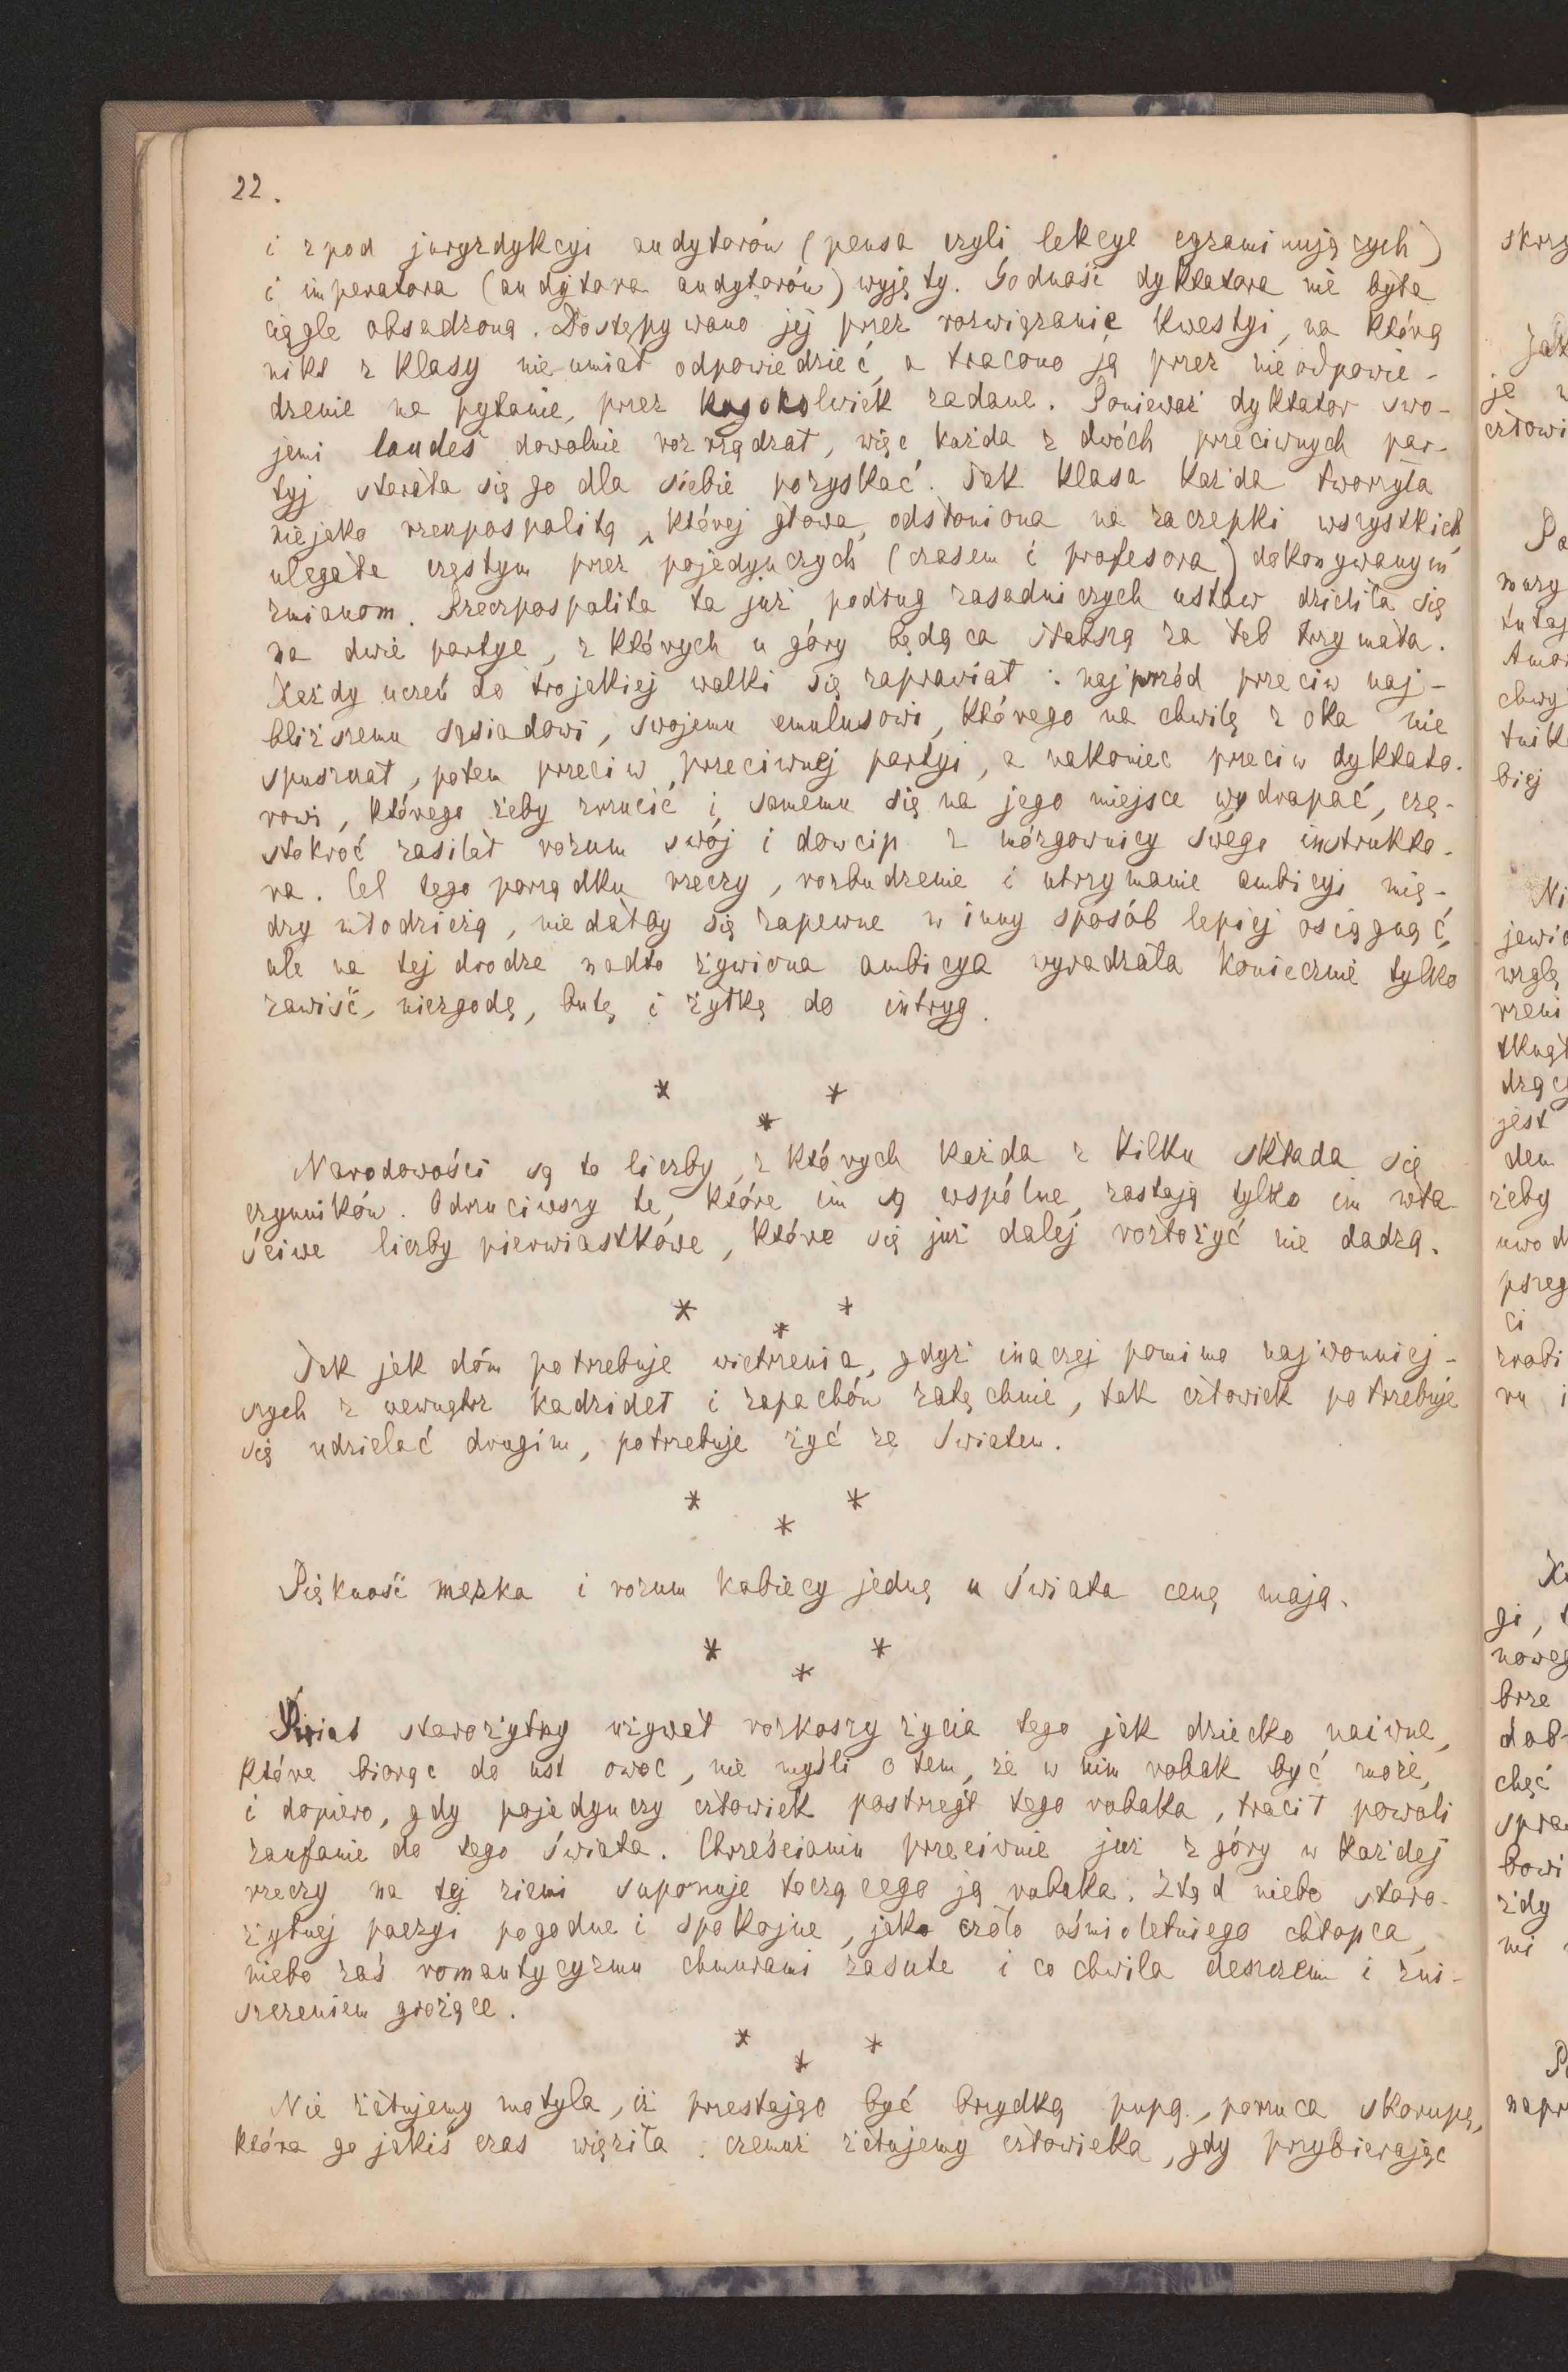 22.
i z pod juryzdykcyi audytorów (pensa czyli lekcye egzaminujących)
i imperatora (audytora audytorów) wyjęty. Godność dyktatora nie była
ciągle obsadzona. Dostępywano jej przez rozwiązanie kwestyi, na którą
nikt z klasy nie umiał odpowiedzieć, a tracono ją przez nieodpowie-
dzenie na pytanie, przez kogokolwiek zadane. Ponieważ dyktator swo-
jemi laudes dowolnie rozrządzał, więc każda z dwóch przeciwnych par-
tyj starała się go dla siebie pozyskać. Tak klasa każda tworzyła
niejako rzeczpospolitą, której głowa, odsłoniona na zaczepki wszystkich,
ulegała częstym przez pojedynczych (czasem i profesora) dokonywanym
zmianom. Rzeczpospolita ta już podług zasadniczych ustaw dzieliła się
na dwie partye, z których u góry będąca słabszą za łeb trzymała.
Każdy uczeń do trojakiej walki się zaprawiał: najprzód przeciw naj-
bliższemu sąsiadowi, swojemu emulusowi, którego na chwilę z oka nie
spuszczał, potem przeciw przeciwnej partyi, a nakoniec przeciw dyktato-
rowi, którego żeby zrzucić i samemu się na jego miejsce wydrapać, czę-
stokroć zasilał rozum swój i dowcip z mózgownicy swego instrukto-
ra. Cel tego porządku rzeczy, rozbudzenie i utrzymanie ambicyi mię-
dzy młodzieżą, nie dałby się zapewne w inny sposób lepiej osiągnąć,
ale na tej drodze nadto żywiona ambicya wyradzała koniecznie tylko
zawiść, niezgodę, butę i żyłkę do intryg.
* * *
Narodowości są to liczby, z których każda z kilku składa się
czynników. Odrzuciwszy te, które im są wspólne, zostają tylko im wła-
ściwe liczby pierwiastkowe, które się już dalej rozłożyć nie dadzą.
* * *
Jak jak dóm potrzebuje wietrzenia, gdyż inaczej pomimo najwonniej-
szych z wewnątrz kadzideł i zapachów zatęchnie, tak człowiek potrzebuje
się udzielać drugim, potrzebuje żyć ze światem.
* * *
Piękność męzka i rozum kobiecy jedną u świata cenę mają.
* * *
Świat starożytny używał rozkoszy życia tego jak dziecko naiwne,
które biorąc do ust owoc, nie myśli o tem, że w nim robak być może,
i dopiero, gdy pojedynczy człowiek postrzegł tego robaka, tracił powoli
zaufanie do tego świata. Chrześcianin przeciwnie już z góry w każdej
rzeczy na tej ziemi suponuje toczącego ją robaka. Ztąd niebo staro-
żytnej poezyi pogodne i spokojne, jako czoło ośmioletniego chłopca,
niebo zaś romantycyzmu chmurami zasute i co chwila deszczem i zni-
szczeniem grożące.
* * *
Nie żałujemy motyla, iż przestając być brzydką pupą, porzuca skorupę,
która go jakiś czas więziła; czemuż żałujemy człowieka, gdy przybierając